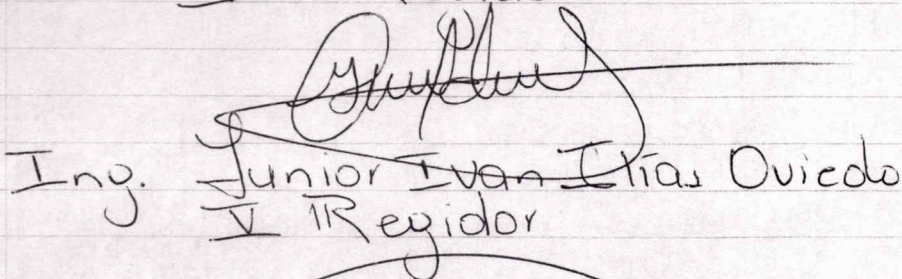 Ing. Junior Ivan Elías Oviedo
V Regidor